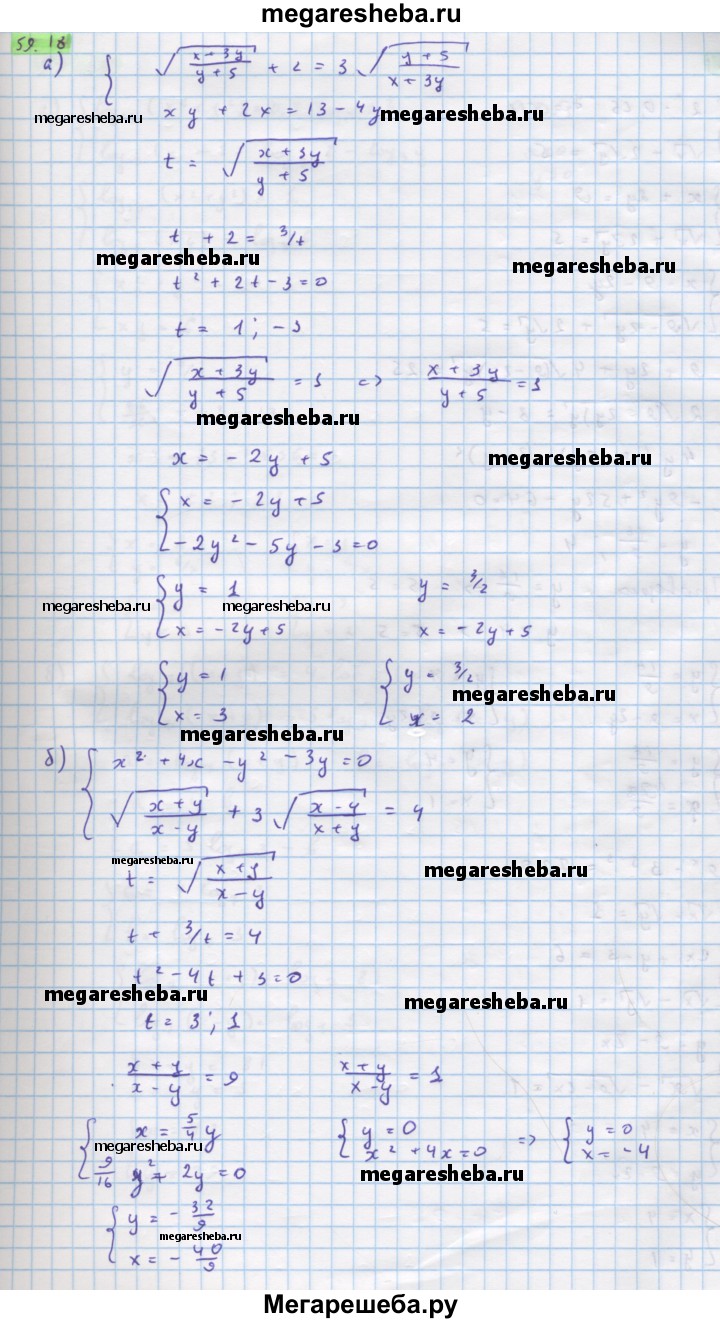 megaresheba.ru
59.18
а) { √((x+3y)/(y+5)) + 2 = 3 √((y+5)/(x+3y))
megaresheba.ru xy + 2x = 13 - 4y megaresheba.ru
t = √((x+3y)/(y+5))
t + 2 = 3/t
megaresheba.ru megaresheba.ru
t² + 2t - 3 = 0
t = 1; -3
√((x+3y)/(y+5)) = 1 => (x+3y)/(y+5) = 1
megaresheba.ru
x = -2y + 5 megaresheba.ru
{ x = -2y + 5
-2y² - 5y - 3 = 0
{ y = 1 y = 3/2
megaresheba.ru megaresheba.ru
x = -2y + 5 x = -2y + 5
{ y = 1 { y = 3/2
megaresheba.ru
x = 3 x = 2
megaresheba.ru
б) { x² + 4x - y² - 3y = 0
√((x+y)/(x-y)) + 3 √((x-y)/(x+y)) = 4
megaresheba.ru megaresheba.ru
t = √((x+y)/(x-y))
t + 3/t = 4
t² - 4t + 3 = 0
megaresheba.ru megaresheba.ru
t = 3; 1
(x+y)/(x-y) = 9 (x+y)/(x-y) = 1
{ x = 5/4 y { y = 0 => { y = 0
megaresheba.ru
9/16 y² + 2y = 0 x² + 4x = 0 x = -4
megaresheba.ru
{ y = - 32/9
megaresheba.ru
x = - 40/9
Мегарешеба.ру